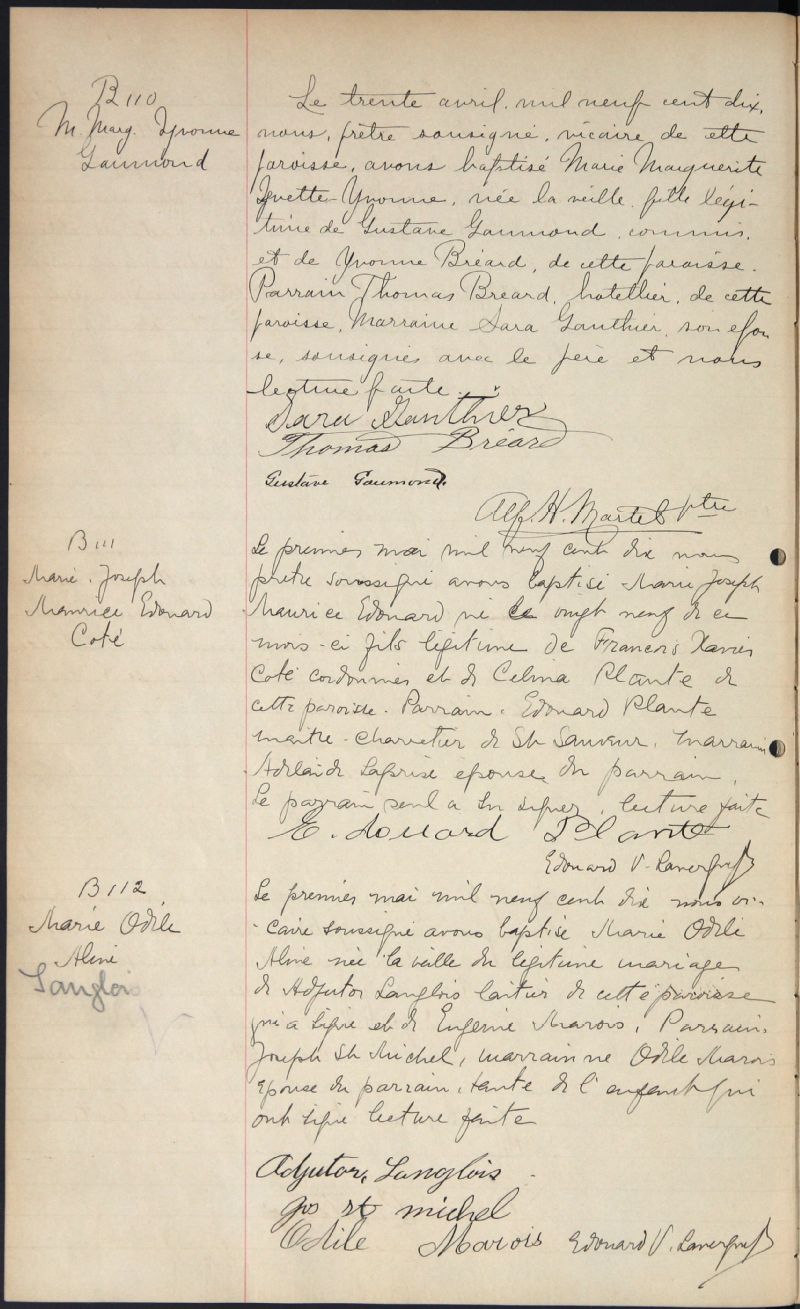 B 110
M. Marg. Yvonne
Gaumond
Le trente avril, mil neuf cent dix,
nous, prêtre sousigné, vicaire de cette
paroisse, avons baptisé Marie Marguerite
Yvette-Yvonne, née la veille, fille légi-
time de Gustave Gaumond, commis,
et de Yvonne Bréard, de cette paroisse.
Parrain Thomas Breard, hotellier, de cette
paroisse, Marraine Sara Gauthier, son épou
se, sousignés avec le père et nous
lecture faite.
Sara Gauthier
Thomas Bréard
Gustave Gaumond.
Alf. H. Martel ptre
B 111
Marie. Joseph
Maurice Edouard
Coté
Le premier mai mil neuf cent dix nous
prêtre soussigné avons baptisé Marie Joseph
Maurice Edouard né le vingt neuf de ce
mois-ci fils légitime de Francois Xavier
Coté cordonnier et de Celina Plante de
cette paroisse. Parrain. Edouard Plante
maitre-charretier de St Sauveur, marraine
Adelaide Laprise épouse du parrain,
Le parrain seul a su signer, lecture faite
E. douard Plante
Edouard V. Lavergne ptr
B 112
Marie Odile
Aline
Langlois
Le premier mai mil neuf cent dix nous vi-
caire soussigné avons baptisé Marie Odile
Aline née la veille du légitime mariage
de Adjutor Langlois laitier de cette paroisse
qui a signé et de Eugenie Marois, Parrain.
Joseph St Michel, marrainne Odile Marois
épouse du parrain, tante de l'enfant qui
ont signé lecture faite
Adjutor, Langlois
Jos st michel
Odile Marois Edouard V. Lavergne ptr